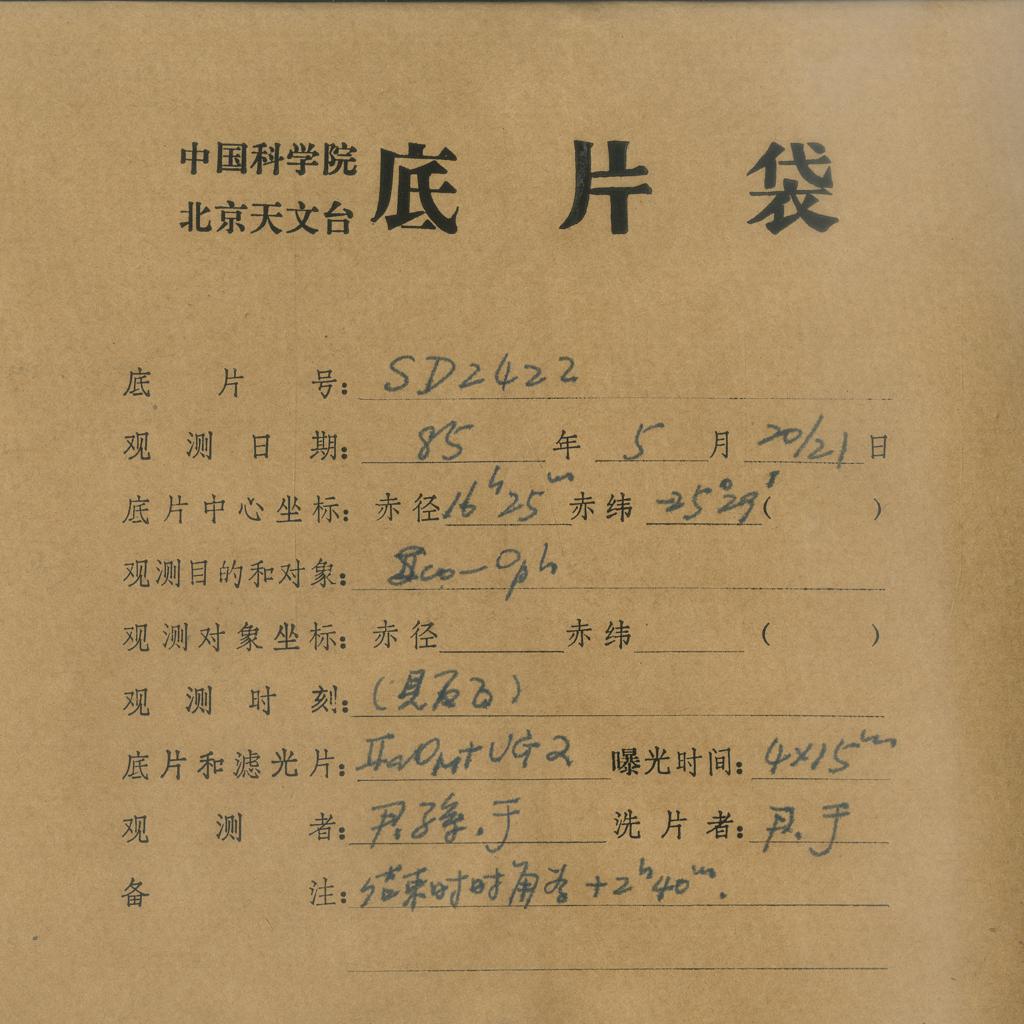 中国科学院
北京天文台
底片袋
底片号: SD2422
观测日期: 85年 5月 20/21日
底片中心坐标: 赤径 16h25m 赤纬 -25°29′( )
观测目的和对象: Sco-Oph
观测对象坐标: 赤径 赤纬 ( )
观测时刻: (见反面)
底片和滤光片: IIaO UG2 曝光时间: 4×15m
观测者: 于 洗片者: 于
备注: 结束时时角为+2h40m.